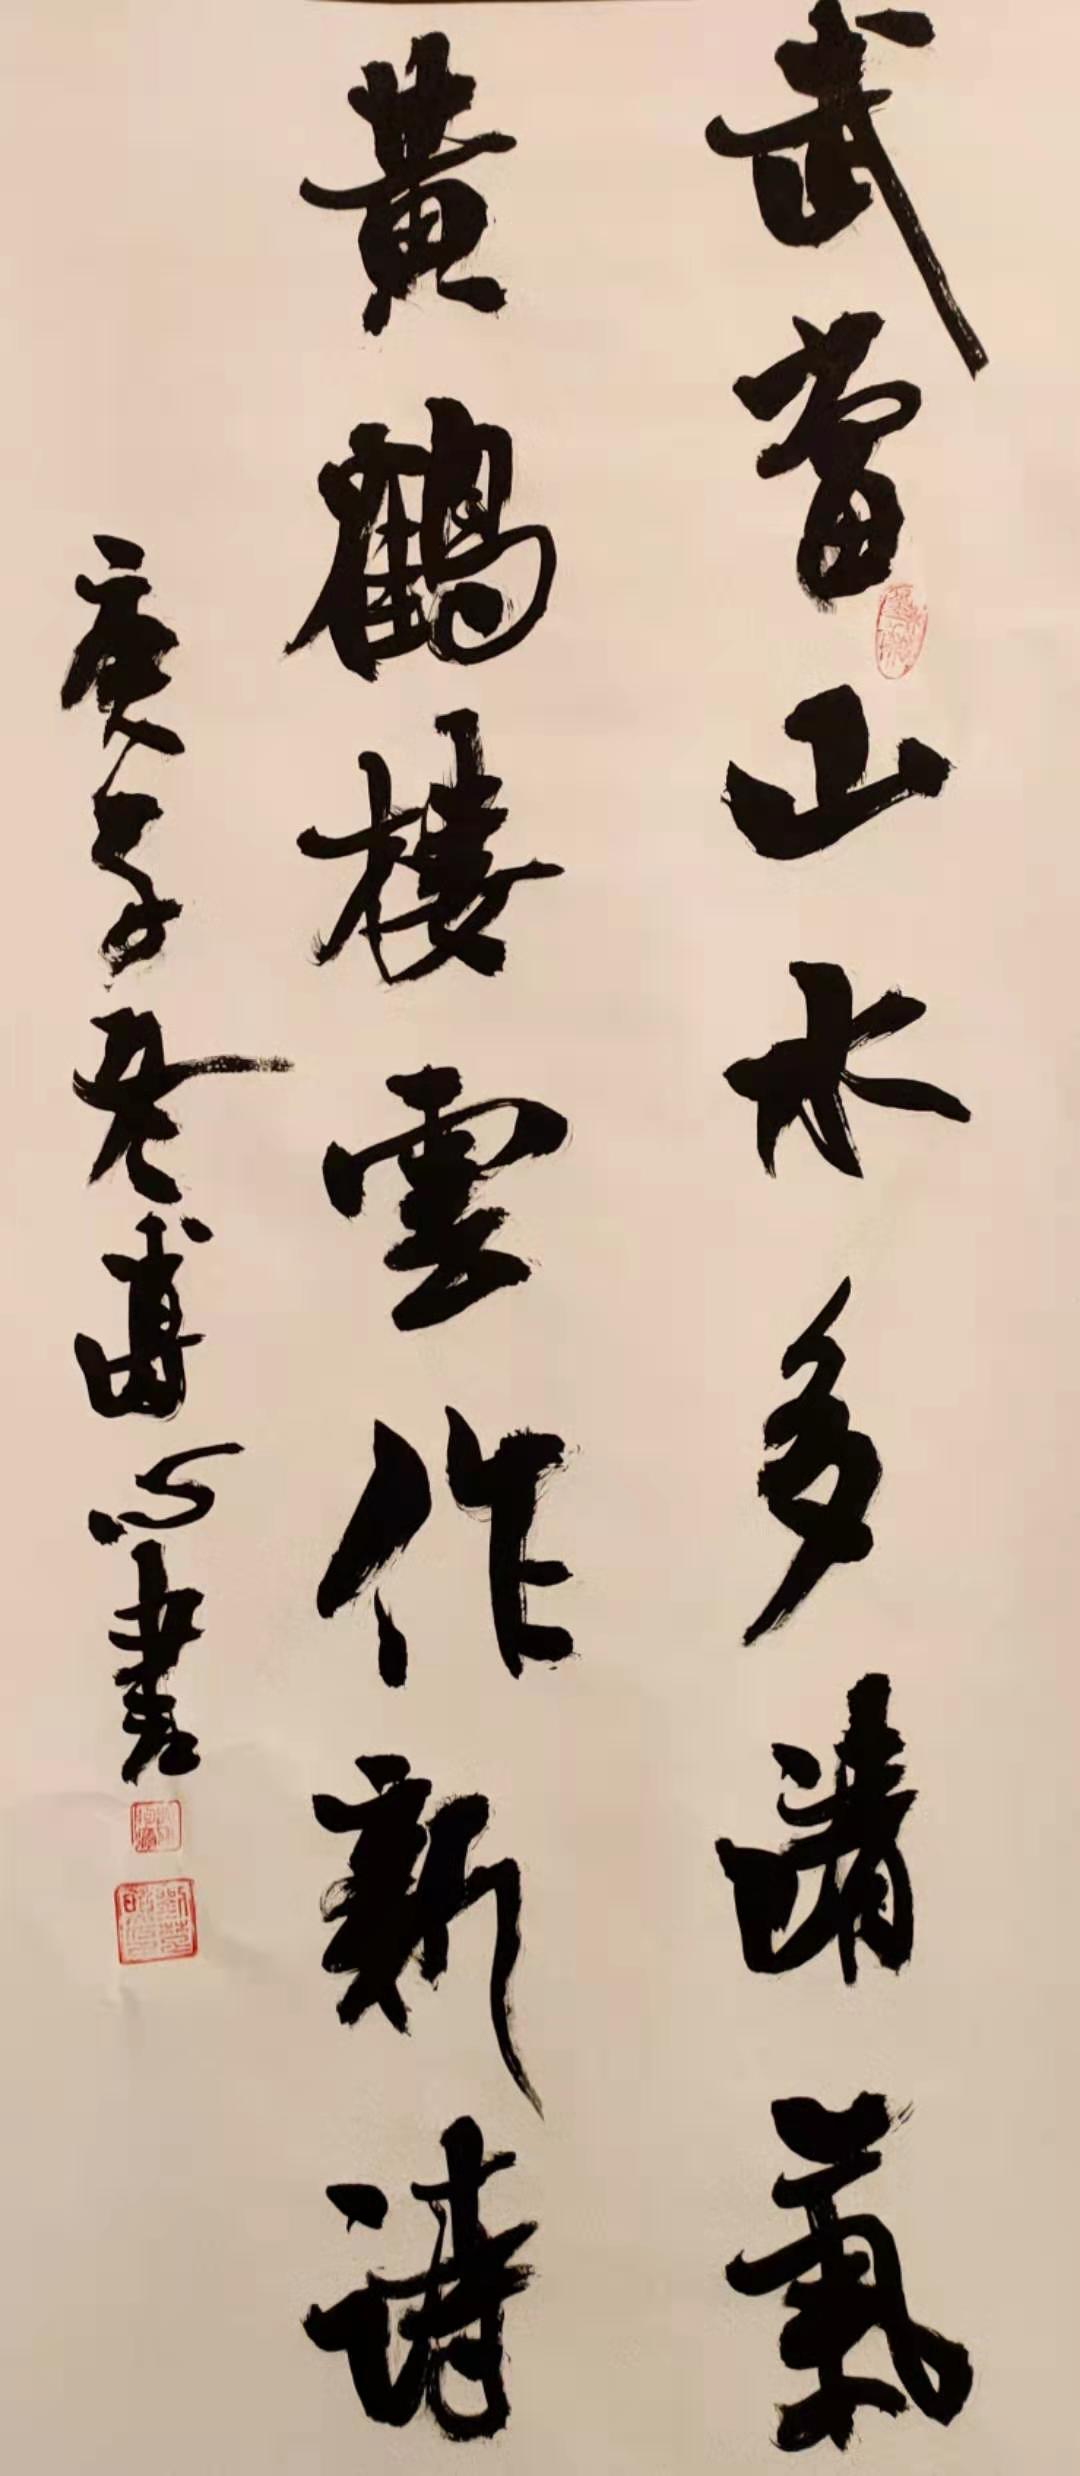 武當山水多清氣
黃鶴樓雲作新詩
庚子春博心書